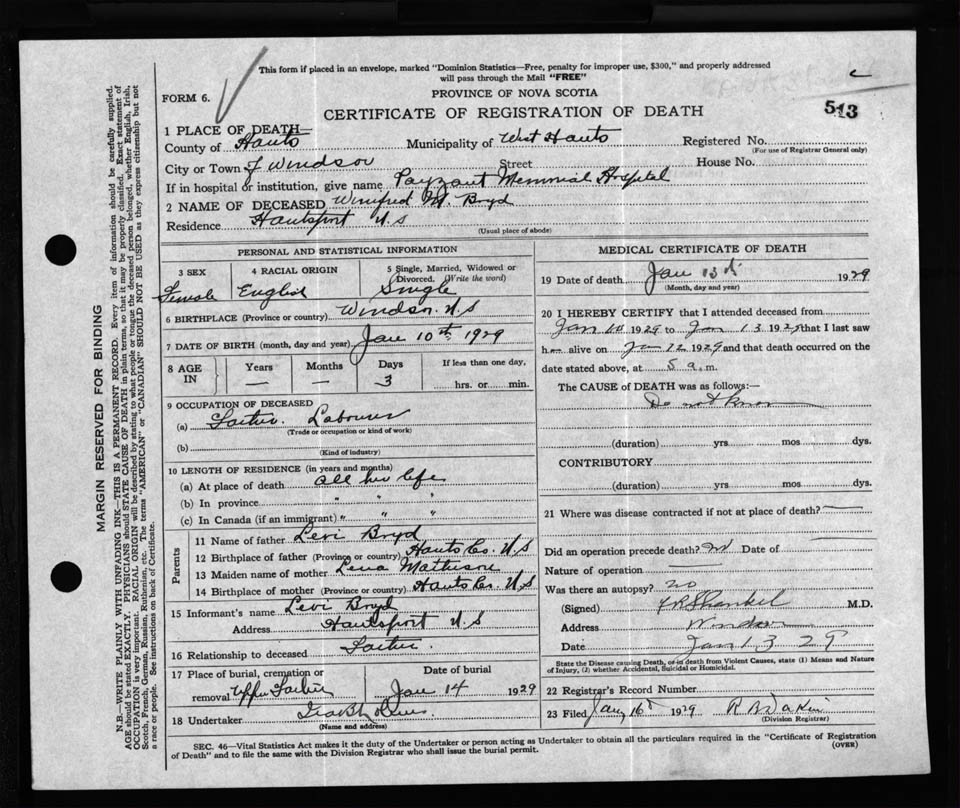 This form if placed in an envelope, marked "Dominion Statistics—Free, penalty for improper use, $300," and properly addressed
will pass through the Mail "FREE"
FORM 6.
PROVINCE OF NOVA SCOTIA
CERTIFICATE OF REGISTRATION OF DEATH
513
1 PLACE OF DEATH—
County of Hants Municipality of West Hants Registered No.
(For use of Registrar General only)
City or Town of Windsor Street House No.
If in hospital or institution, give name Payzant Memorial Hospital
2 NAME OF DECEASED Winifred M. Boyd
Residence Hantsport N S
(Usual place of abode)
PERSONAL AND STATISTICAL INFORMATION
3 SEX Female
4 RACIAL ORIGIN English
5 Single, Married, Widowed or Divorced. (Write the word) Single
6 BIRTHPLACE (Province or country) Windsor. N. S
7 DATE OF BIRTH (month, day and year) Jan 10th 1929
8 AGE IN Years — Months — Days 3 If less than one day, hrs. or min.
9 OCCUPATION OF DECEASED
(a) Father. Labourer
(Trade or occupation or kind of work)
(b)
(Kind of industry)
10 LENGTH OF RESIDENCE (in years and months)
(a) At place of death all her life
(b) In province " " "
(c) In Canada (if an immigrant) " " "
Parents
11 Name of father Levi Boyd
12 Birthplace of father (Province or country) Hants Co. N S
13 Maiden name of mother Lena
14 Birthplace of mother (Province or country) Hants Co. N S
15 Informant's name Levi Boyd
Address Hantsport N S
16 Relationship to deceased Father
17 Place of burial, cremation or removal Upper
Date of burial Jan 14 1929
18 Undertaker
(Name and address)
MEDICAL CERTIFICATE OF DEATH
19 Date of death Jan 13th 1929
(Month, day and year)
20 I HEREBY CERTIFY that I attended deceased from
Jan 10 1929 to Jan 13 1929 that I last saw
h alive on Jan 12 1929 and that death occurred on the
date stated above, at 5 a.m.
The CAUSE OF DEATH was as follows:—
Do not know
(duration) yrs mos dys.
CONTRIBUTORY
(duration) yrs mos dys.
21 Where was disease contracted if not at place of death? —
Did an operation precede death? no Date of —
Nature of operation —
Was there an autopsy? no
(Signed) Shankel M.D.
Address Windsor
Date Jan 13 29
State the Disease causing Death, or in death from Violent Causes, state (1) Means and Nature
of Injury, (2) whether Accidental, Suicidal or Homicidal.
22 Registrar's Record Number
23 Filed Jany 16th 1929
(Division Registrar)
SEC. 46—Vital Statistics Act makes it the duty of the Undertaker or person acting as Undertaker to obtain all the particulars required in the "Certificate of Registration
of Death" and to file the same with the Division Registrar who shall issue the burial permit.
(OVER)
MARGIN RESERVED FOR BINDING
N.B.—WRITE PLAINLY WITH UNFADING INK—THIS IS A PERMANENT RECORD. Every item of information should be carefully supplied.
AGE should be stated EXACTLY. PHYSICIANS should STATE CAUSE OF DEATH in plain terms, so that it may be properly classified. Exact statement of
OCCUPATION is very important. RACIAL ORIGIN will be described by stating to what people or tongue the deceased person belonged, whether English, Irish,
Scotch, French, German, Russian, Ruthenian, etc. The terms "AMERICAN" or "CANADIAN" SHOULD NOT BE USED as they express citizenship but not
a race or people. See instructions on back of Certificate.